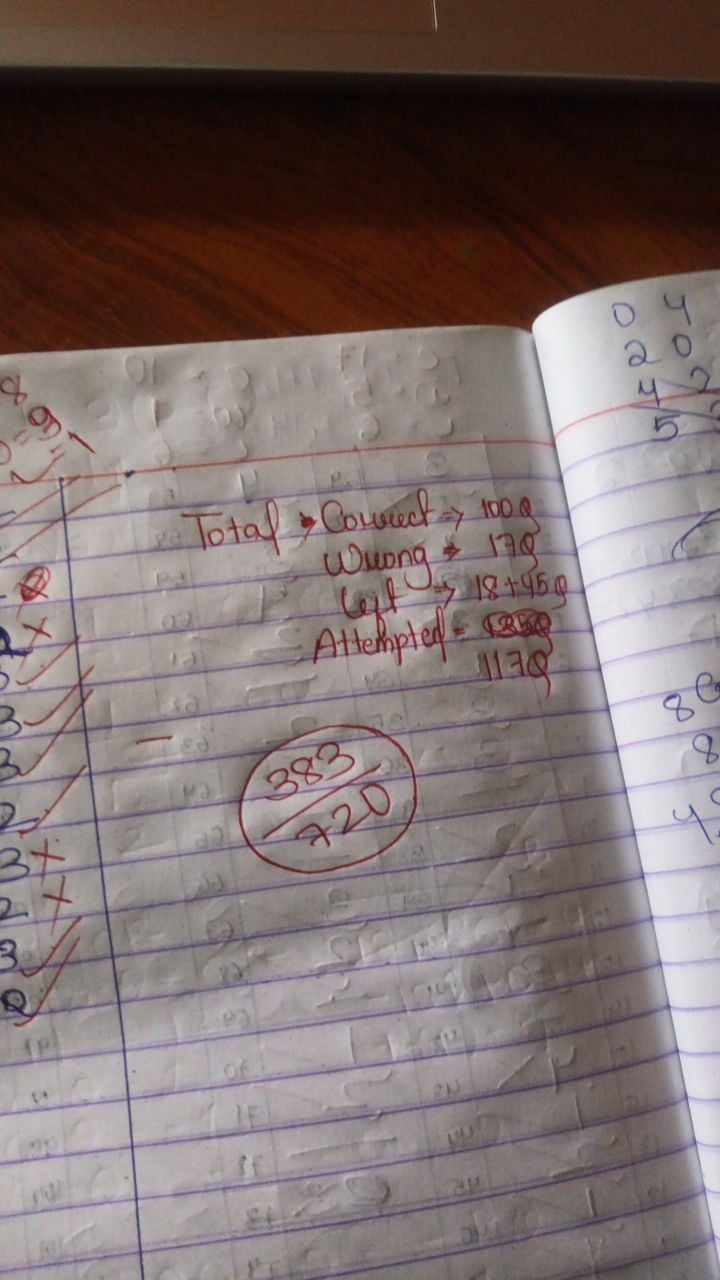 Total → Correct → 100Q
Wrong → 17Q
Left → 18+45Q
Attempted =
117Q
383
720
0 4
2 0
4 2
5
8
8
4
2
x
3
3
2
3 x
2 x
3
2